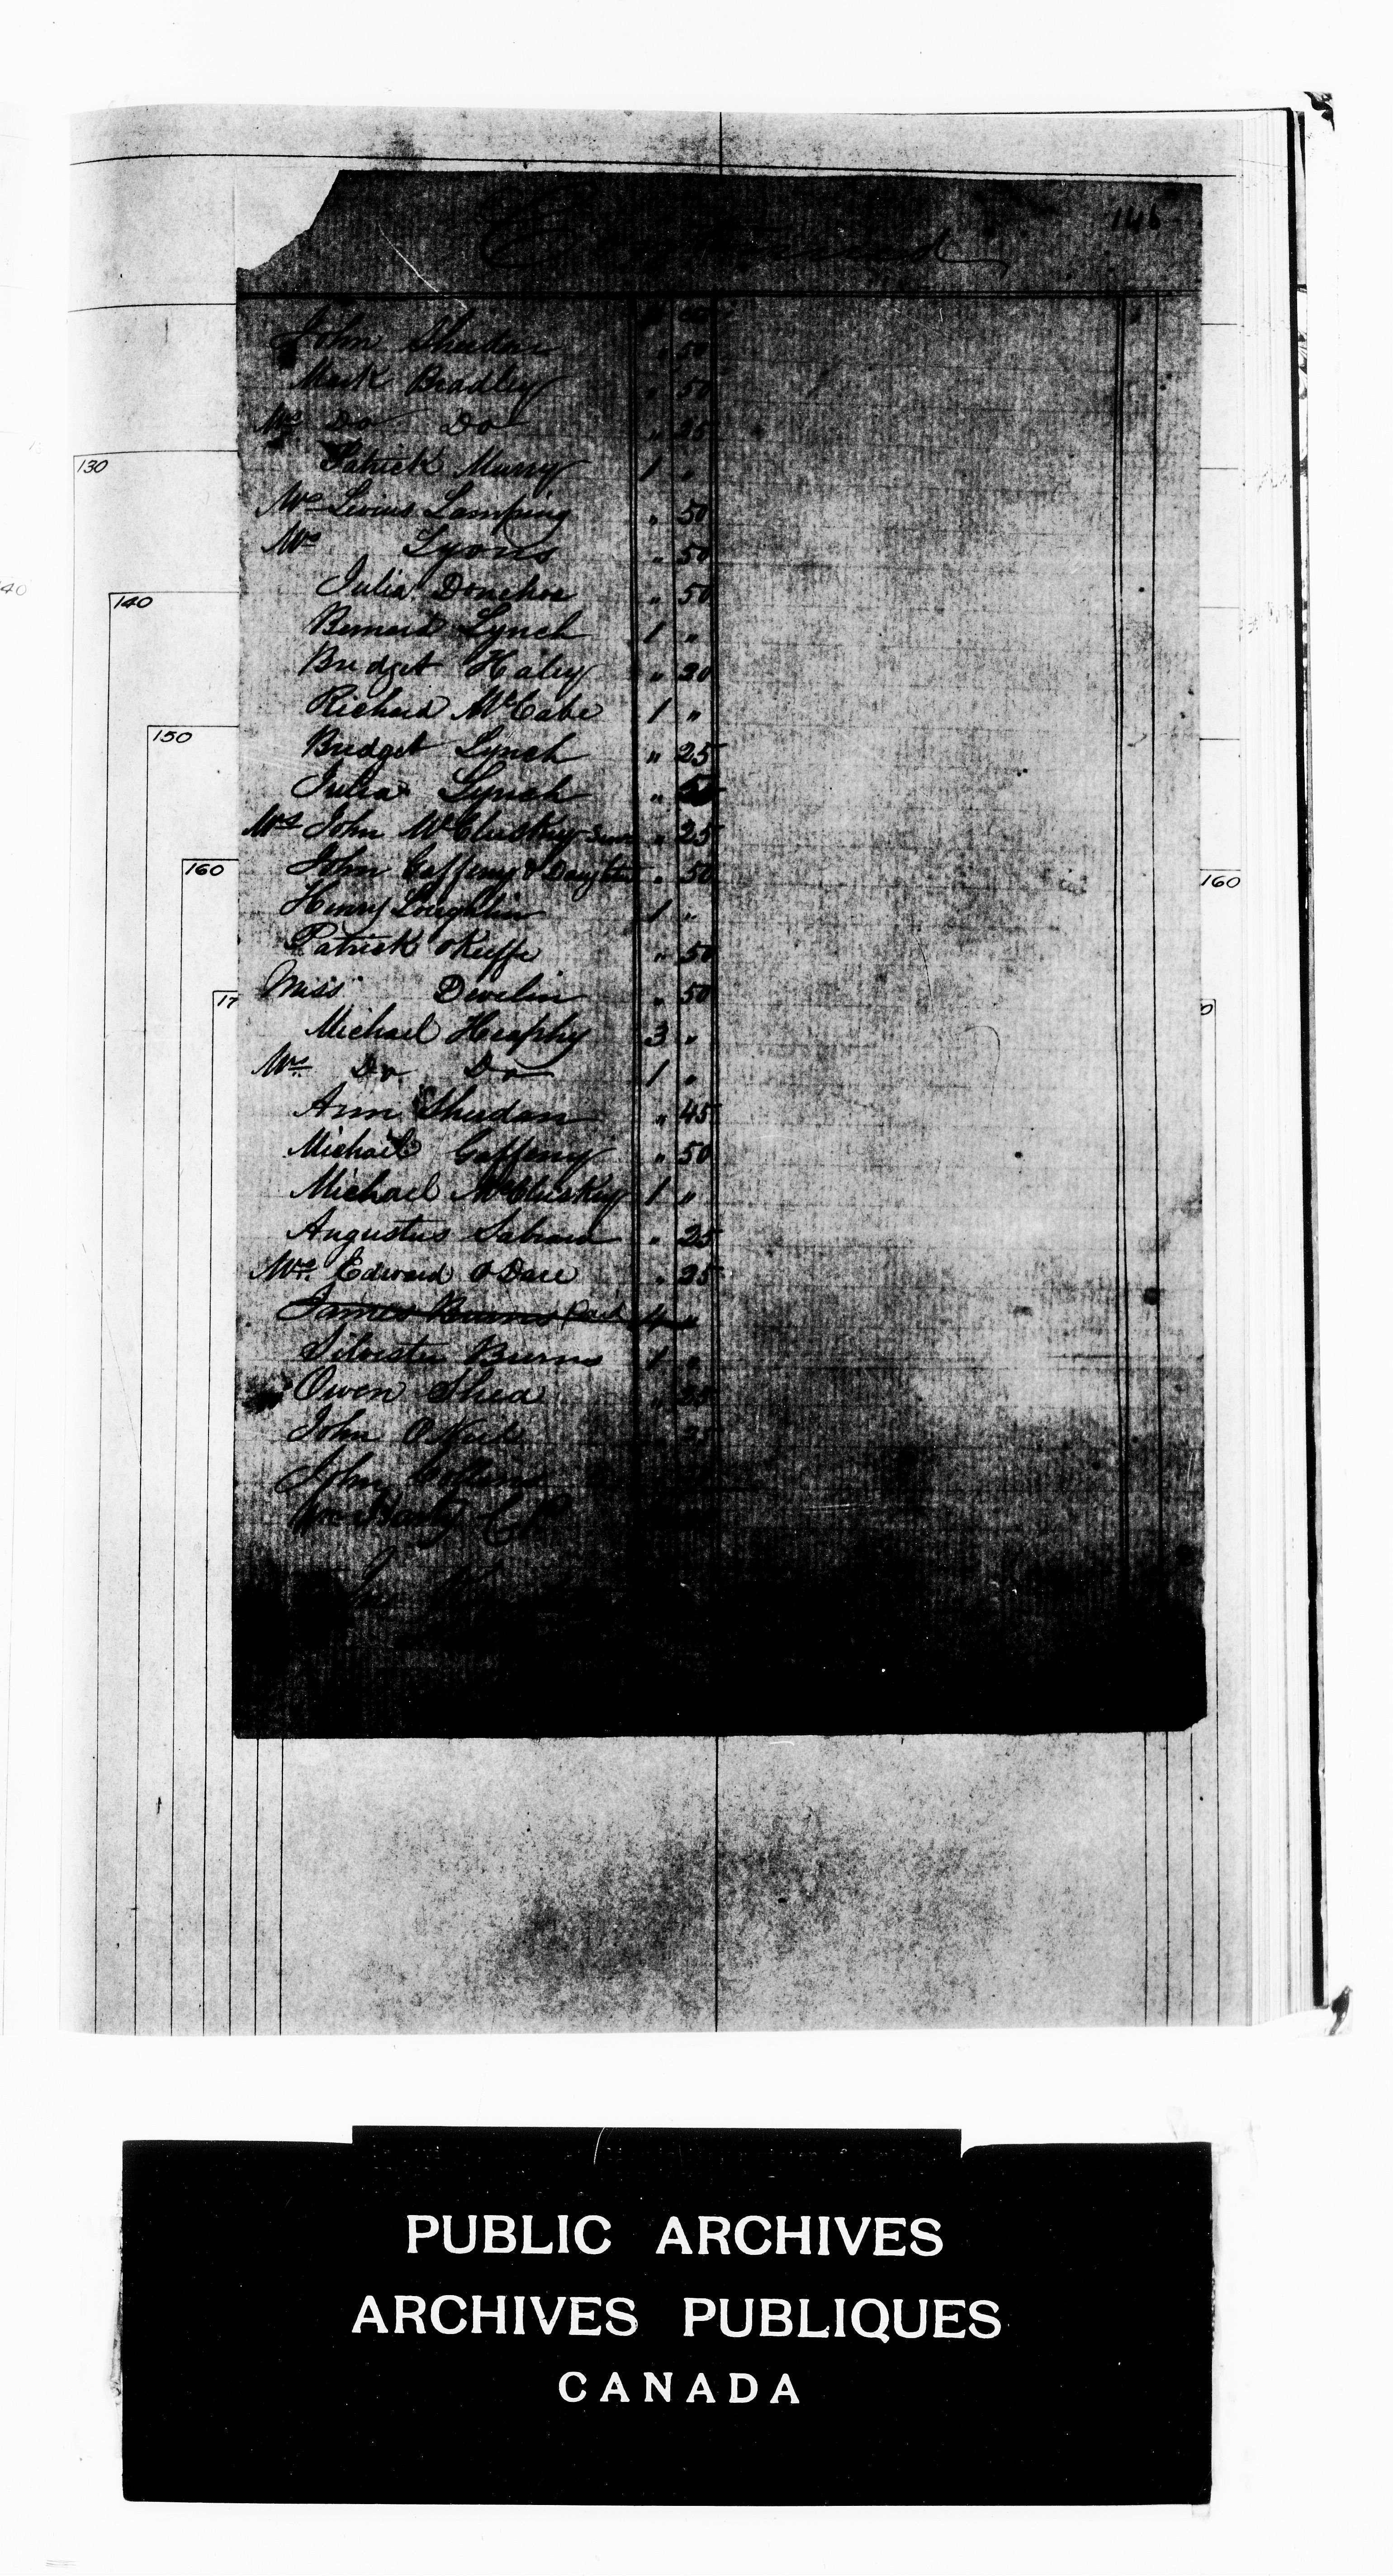 146
Continued
$ cts
John Sheridan " 50
Mark Bradley " 50
Mrs Do Do " 25
Patrick Murry 1 "
130
Mrs Livius Lamping " 50
Mrs Lyons " 50
Julia Donehoe " 50
140
Bernard Lynch 1 "
Bridget Haley " 30
Richard McCabe 1 "
150
Bridget Lynch " 25
Julia Lynch "
Mrs John McCluskey Senr " 25
160
John Gaffeny & Daughter " 50
160
Henry Loughlin 1 "
Patrick OKeiffe " 50
Miss Develin " 50
17
Michael Heaphy 3 "
Mrs Do Do 1 "
Ann Sheridan " 45
Michael Gaffeny " 50
Michael McCluskey 1 "
Augustus Sabourin " 25
Mrs Edward O Dare " 25
James Burns Paid 4 "
Silvester Burns 1 "
Owen Shea " 25
John O'Neil " 25
John Collins
PUBLIC ARCHIVES
ARCHIVES PUBLIQUES
CANADA